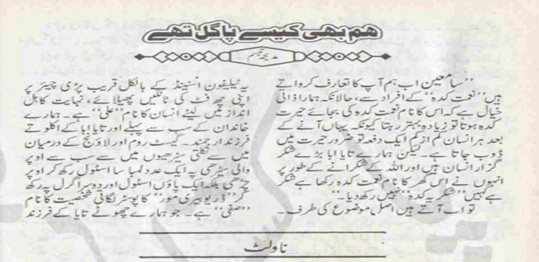 ہم بھی کیسے پاگل تھے
مدیحہ تبسم
"سامعین اب ہم آپ کا تعارف کرواتے
ہیں "نعمت کدہ" کے افراد سے، حالانکہ ہمارا ذاتی
خیال ہے کہ اس کا نام نعمت کدہ کی بجائے حیرت
کدہ ہوتا تو زیادہ بہتر رہتا کیونکہ یہاں آنے کے
بعد ہر انسان کم از کم ایک دفعہ تو ضرور حیرت میں
ڈوب جاتا ہے۔ لیکن ہمارے تایا ابا بڑے شکر
گزار انسان ہیں اور اللہ کی شکرانے کے طور پر
انہوں نے اس گھر کا نام نعمت کدہ رکھا ہے شکر
ہے کہیں "شکریہ کدہ" نہیں رکھ دیا۔"
تو اب آتے ہیں اصل موضوع کی طرف۔
یہ ٹیلیفون اسٹینڈ کے بالکل قریب پڑی چیئر پر
اپنی چھ فٹ کی ٹانگیں پھیلائے، نہایت کاہل
انداز میں لیٹے انسان کا نام "علی" ہے۔ ہمارے
خاندان کے سب سے پہلے اور تایا ابا کے اکلوتے
فرزند ارجمند۔ گیسٹ روم اور لاؤنج کے درمیان
میں سے نکلتی سیڑھیوں میں سے سب سے اوپر
والی سیڑھی پہ ایک عدد لمبا سا اسٹول رکھ کر اوپر
چڑھی بلکہ ایک پاؤں اسٹول اور دوسرا گرل پہ رکھ
کر "ڈریو بیری مور" کا پوسٹر لگاتی شخصیت کا نام
ہے۔ جو ہمارے چھوٹے تایا کے فرزند
ناولٹ